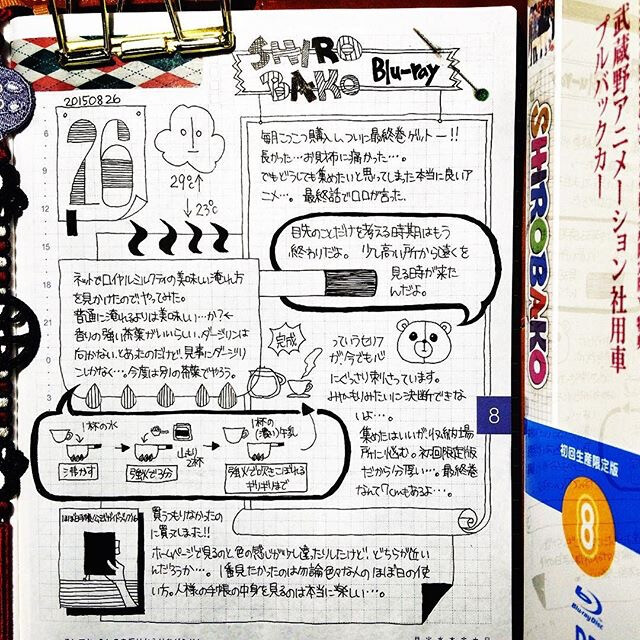 SHIROBAKO
Blu-ray
20150826
26
29℃↑
↓23℃
毎月こつこつ購入しついに最終巻ゲットー!!
長かった…お財布に痛かった…。
でもどうしても集めたいと思ってしまた本当に良いア
ニメ…。最終話でロロが言った
目先のことだけを考える時期はもう
終わりだよ。少し高い所から遠くを
見る時が来た
んだよ。
っていうセリフ
が今でも心
にぐっさり刺さっています。
みゃもりみたいに決断できな
いよ…。
集めたはいいが、収納場
所に悩む。初回限定版
だから分厚い…。最終巻
なんて7cmもあるよ…。
ネットでロイヤルミルクティの美味しい淹れ方
を見かけたのでやってみた。
普通に淹れるよりは美味しい…か?←
香りの強い茶葉がいいらしい。ダージリンは
向かないとあったのだけど、見事にダージリ
ンしかなく…。今度は別の茶葉でやろう。
完成
1杯の水
沸かす
山もり
2杯
強火で3分
1杯の
(濃い)牛乳
強火で吹きこぼれる
ギリギリまで
買うつもりなかったの
に買ってしまた!!
ホームページで見るのと色の感じが少し違ったりしたけど、どちらが近い
んだろうか…。1番見たかったのは勿論色々な人のほぼ日の使
い方。人様の手帳の中身を見るのは本当に楽しい…。
6
9
12
15
18
21
0
3
8
武蔵野アニメーション社用車
プルバックカー
SHIROBAKO
初回生産限定版
8
Blu-ray Disc